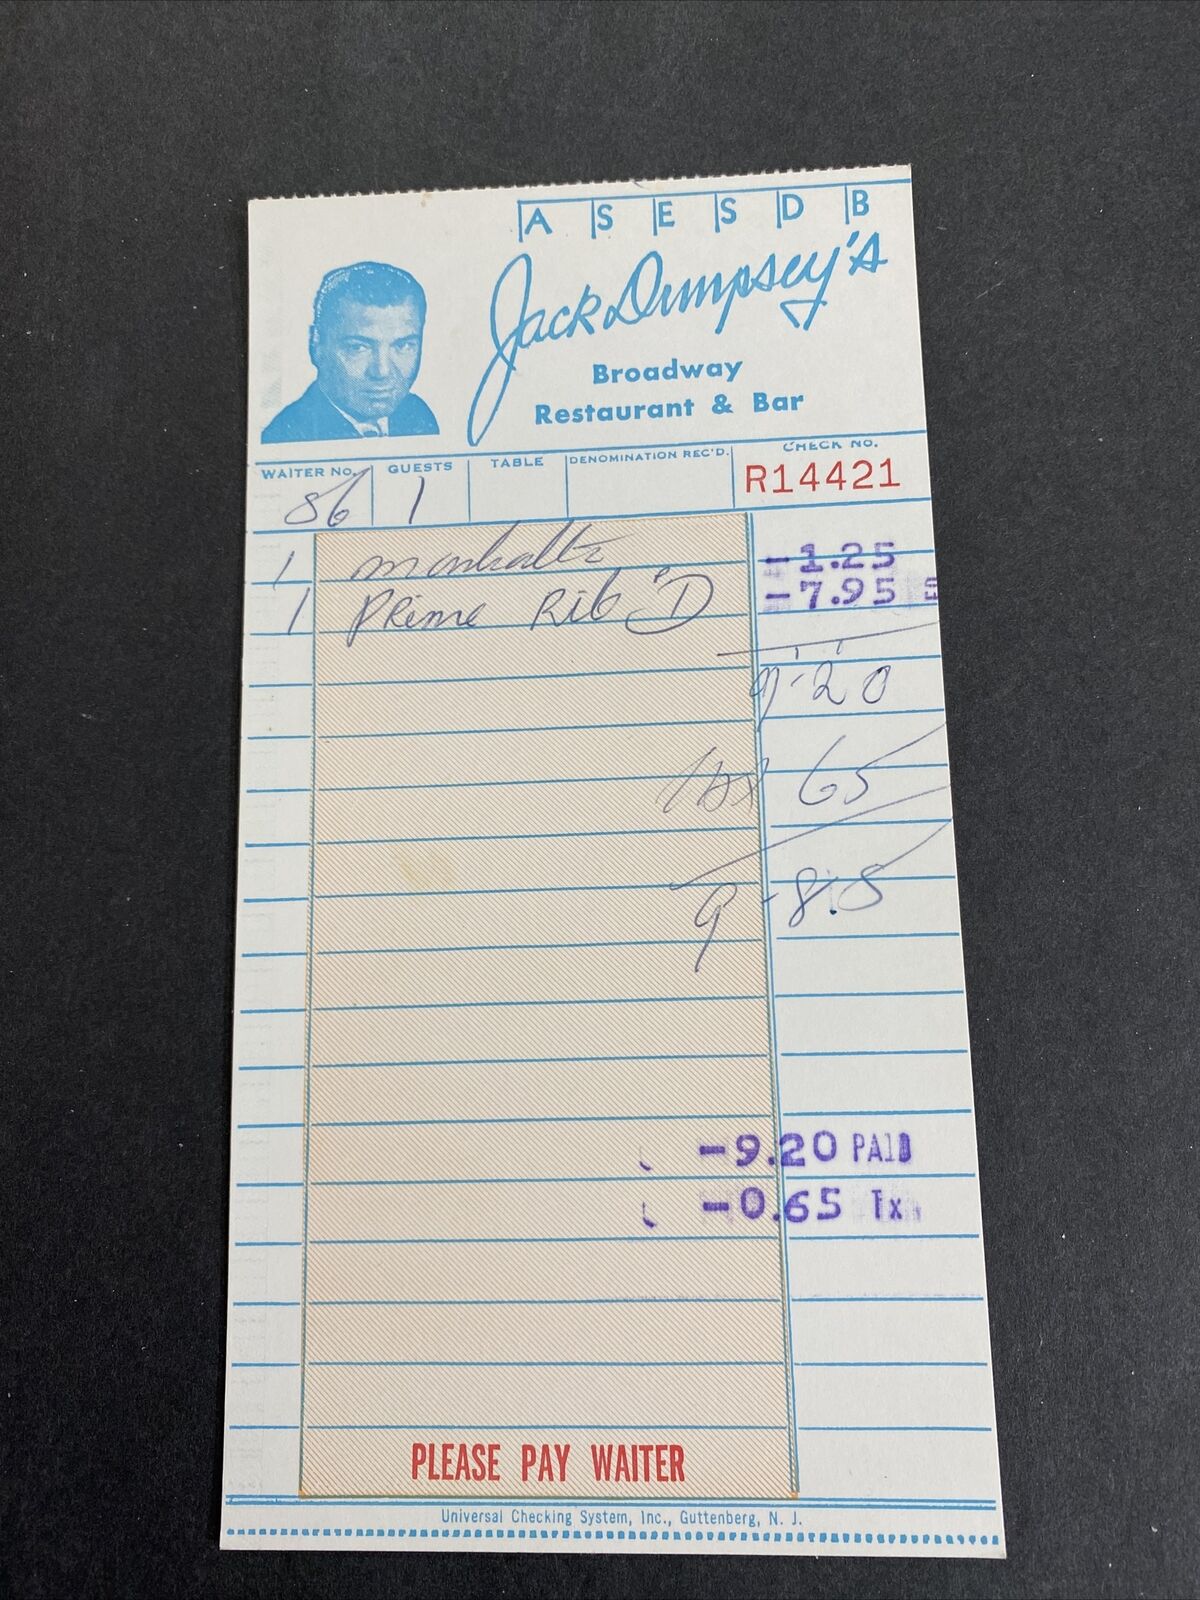 A S E S D B
Jack Dempsey's
Broadway
Restaurant & Bar
WAITER No. GUESTS TABLE DENOMINATION REC'D. CHECK NO.
86 1 R14421
1 -1.25
1 Prime Rib "D" -7.95
9-20
tax 65
9-85
-9.20 PAID
-0.65 Tx
PLEASE PAY WAITER
Universal Checking System, Inc., Guttenberg, N. J.